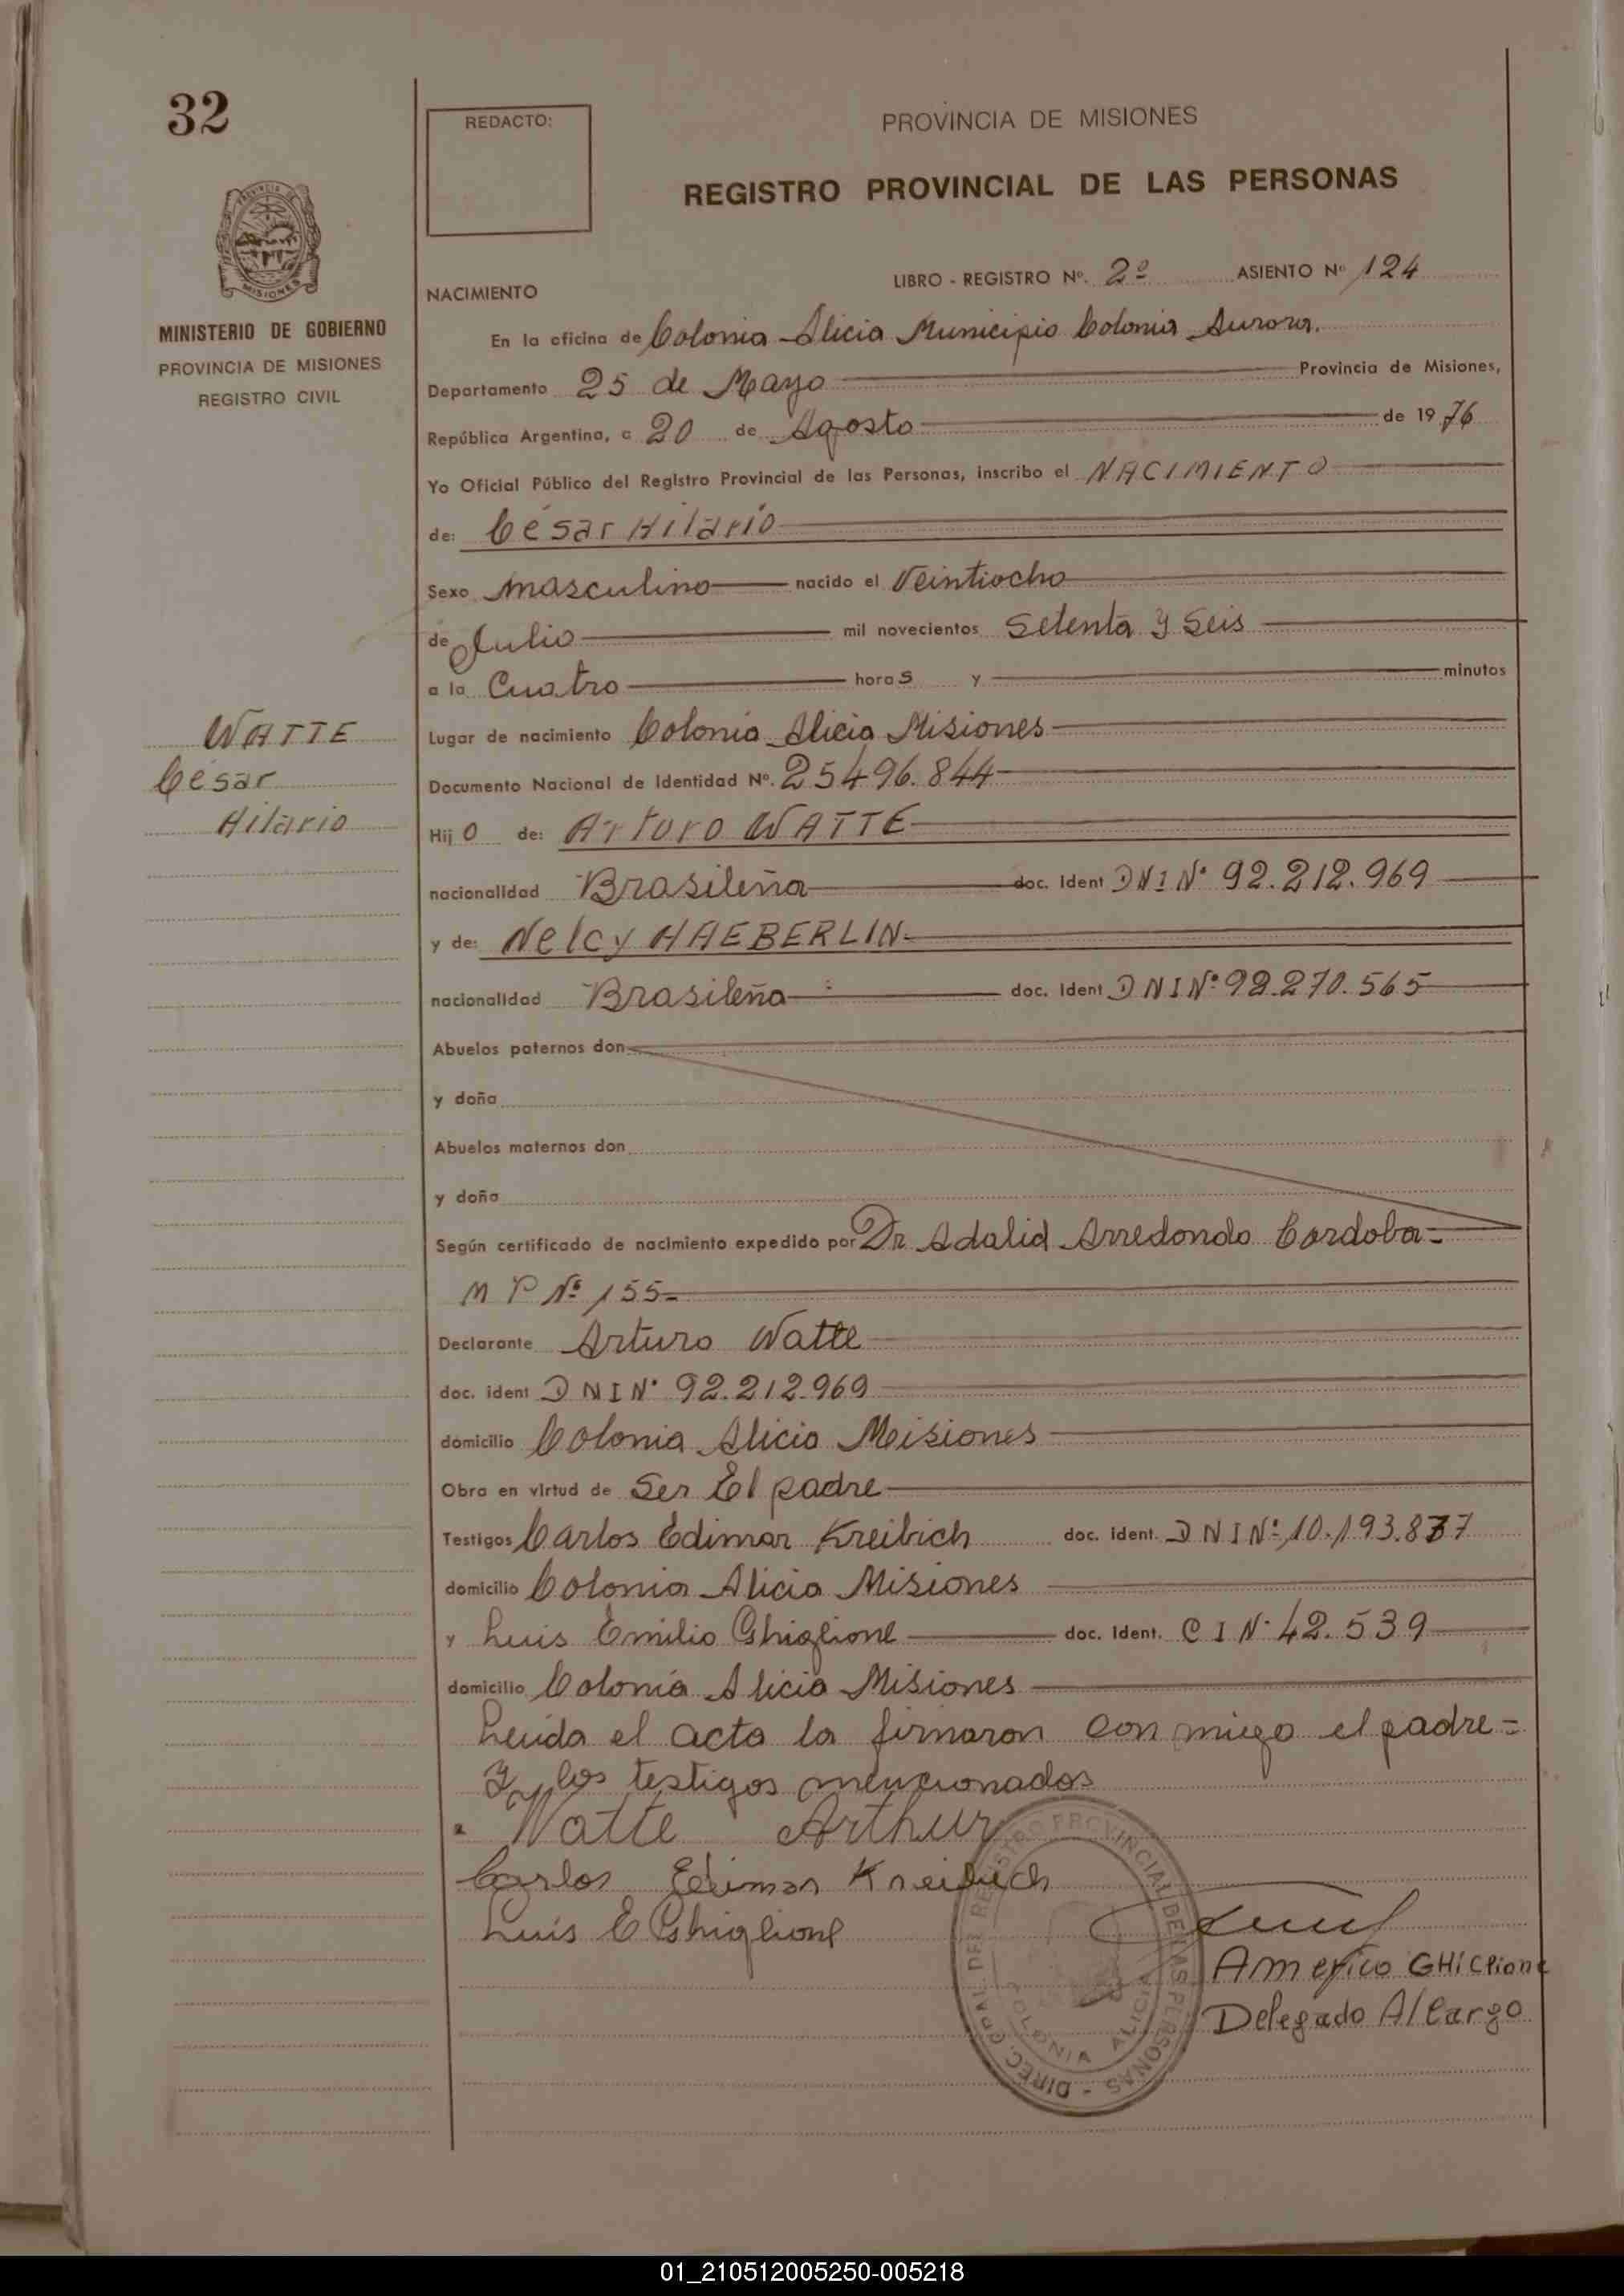 32
REDACTO:
PROVINCIA DE MISIONES
REGISTRO PROVINCIAL DE LAS PERSONAS
MISIONES
MINISTERIO DE GOBIERNO
PROVINCIA DE MISIONES
REGISTRO CIVIL
LIBRO - REGISTRO Nº. 2º ASIENTO Nº 124
NACIMIENTO
En la oficina de Colonia Alicia Municipio Colonia Aurora.
Departamento 25 de Mayo Provincia de Misiones,
República Argentina, a 20 de Agosto de 1976
Yo Oficial Público del Registro Provincial de las Personas, inscribo el NACIMIENTO
de: César Hilario
Sexo masculino nacido el Veintiocho
de Julio mil novecientos Setenta y Seis
a la Cuatro horas y minutos
WATTE
César
Hilario
Lugar de nacimiento Colonia Alicia Misiones
Documento Nacional de Identidad Nº. 25496.844
Hijo de: Arturo WATTE
nacionalidad Brasileña doc. Ident DNI Nº 92.212.969
y de: Nelcy HAEBERLIN
nacionalidad Brasileña doc. Ident DNI Nº 92.270.565
Abuelos paternos don
y doña
Abuelos maternos don
y doña
Según certificado de nacimiento expedido por Dr Adalid Arredondo Cordoba=
M P Nº 155=
Declarante Arturo Watte
doc. ident DNI Nº 92.212.969
domicilio Colonia Alicia Misiones
Obra en virtud de Ser El padre
Testigos Carlos Edimar Kreibich doc. ident. DNI Nº 10.193.877
domicilio Colonia Alicia Misiones
y Luis Emilio Ghiglione doc. Ident. C I Nº 42.539
domicilio Colonia Alicia Misiones
Leída el acta la firmaron con migo el padre=
Y los testigos mencionados
Watte Arthur
Carlos Edimar Kreibich
Luis E Ghiglione
DIREC. GRAL. DEL REGISTRO PROVINCIAL DE LAS PERSONAS -
COLONIA ALICIA
Americo GHiglione
Delegado Al Cargo
01_210512005250-005218